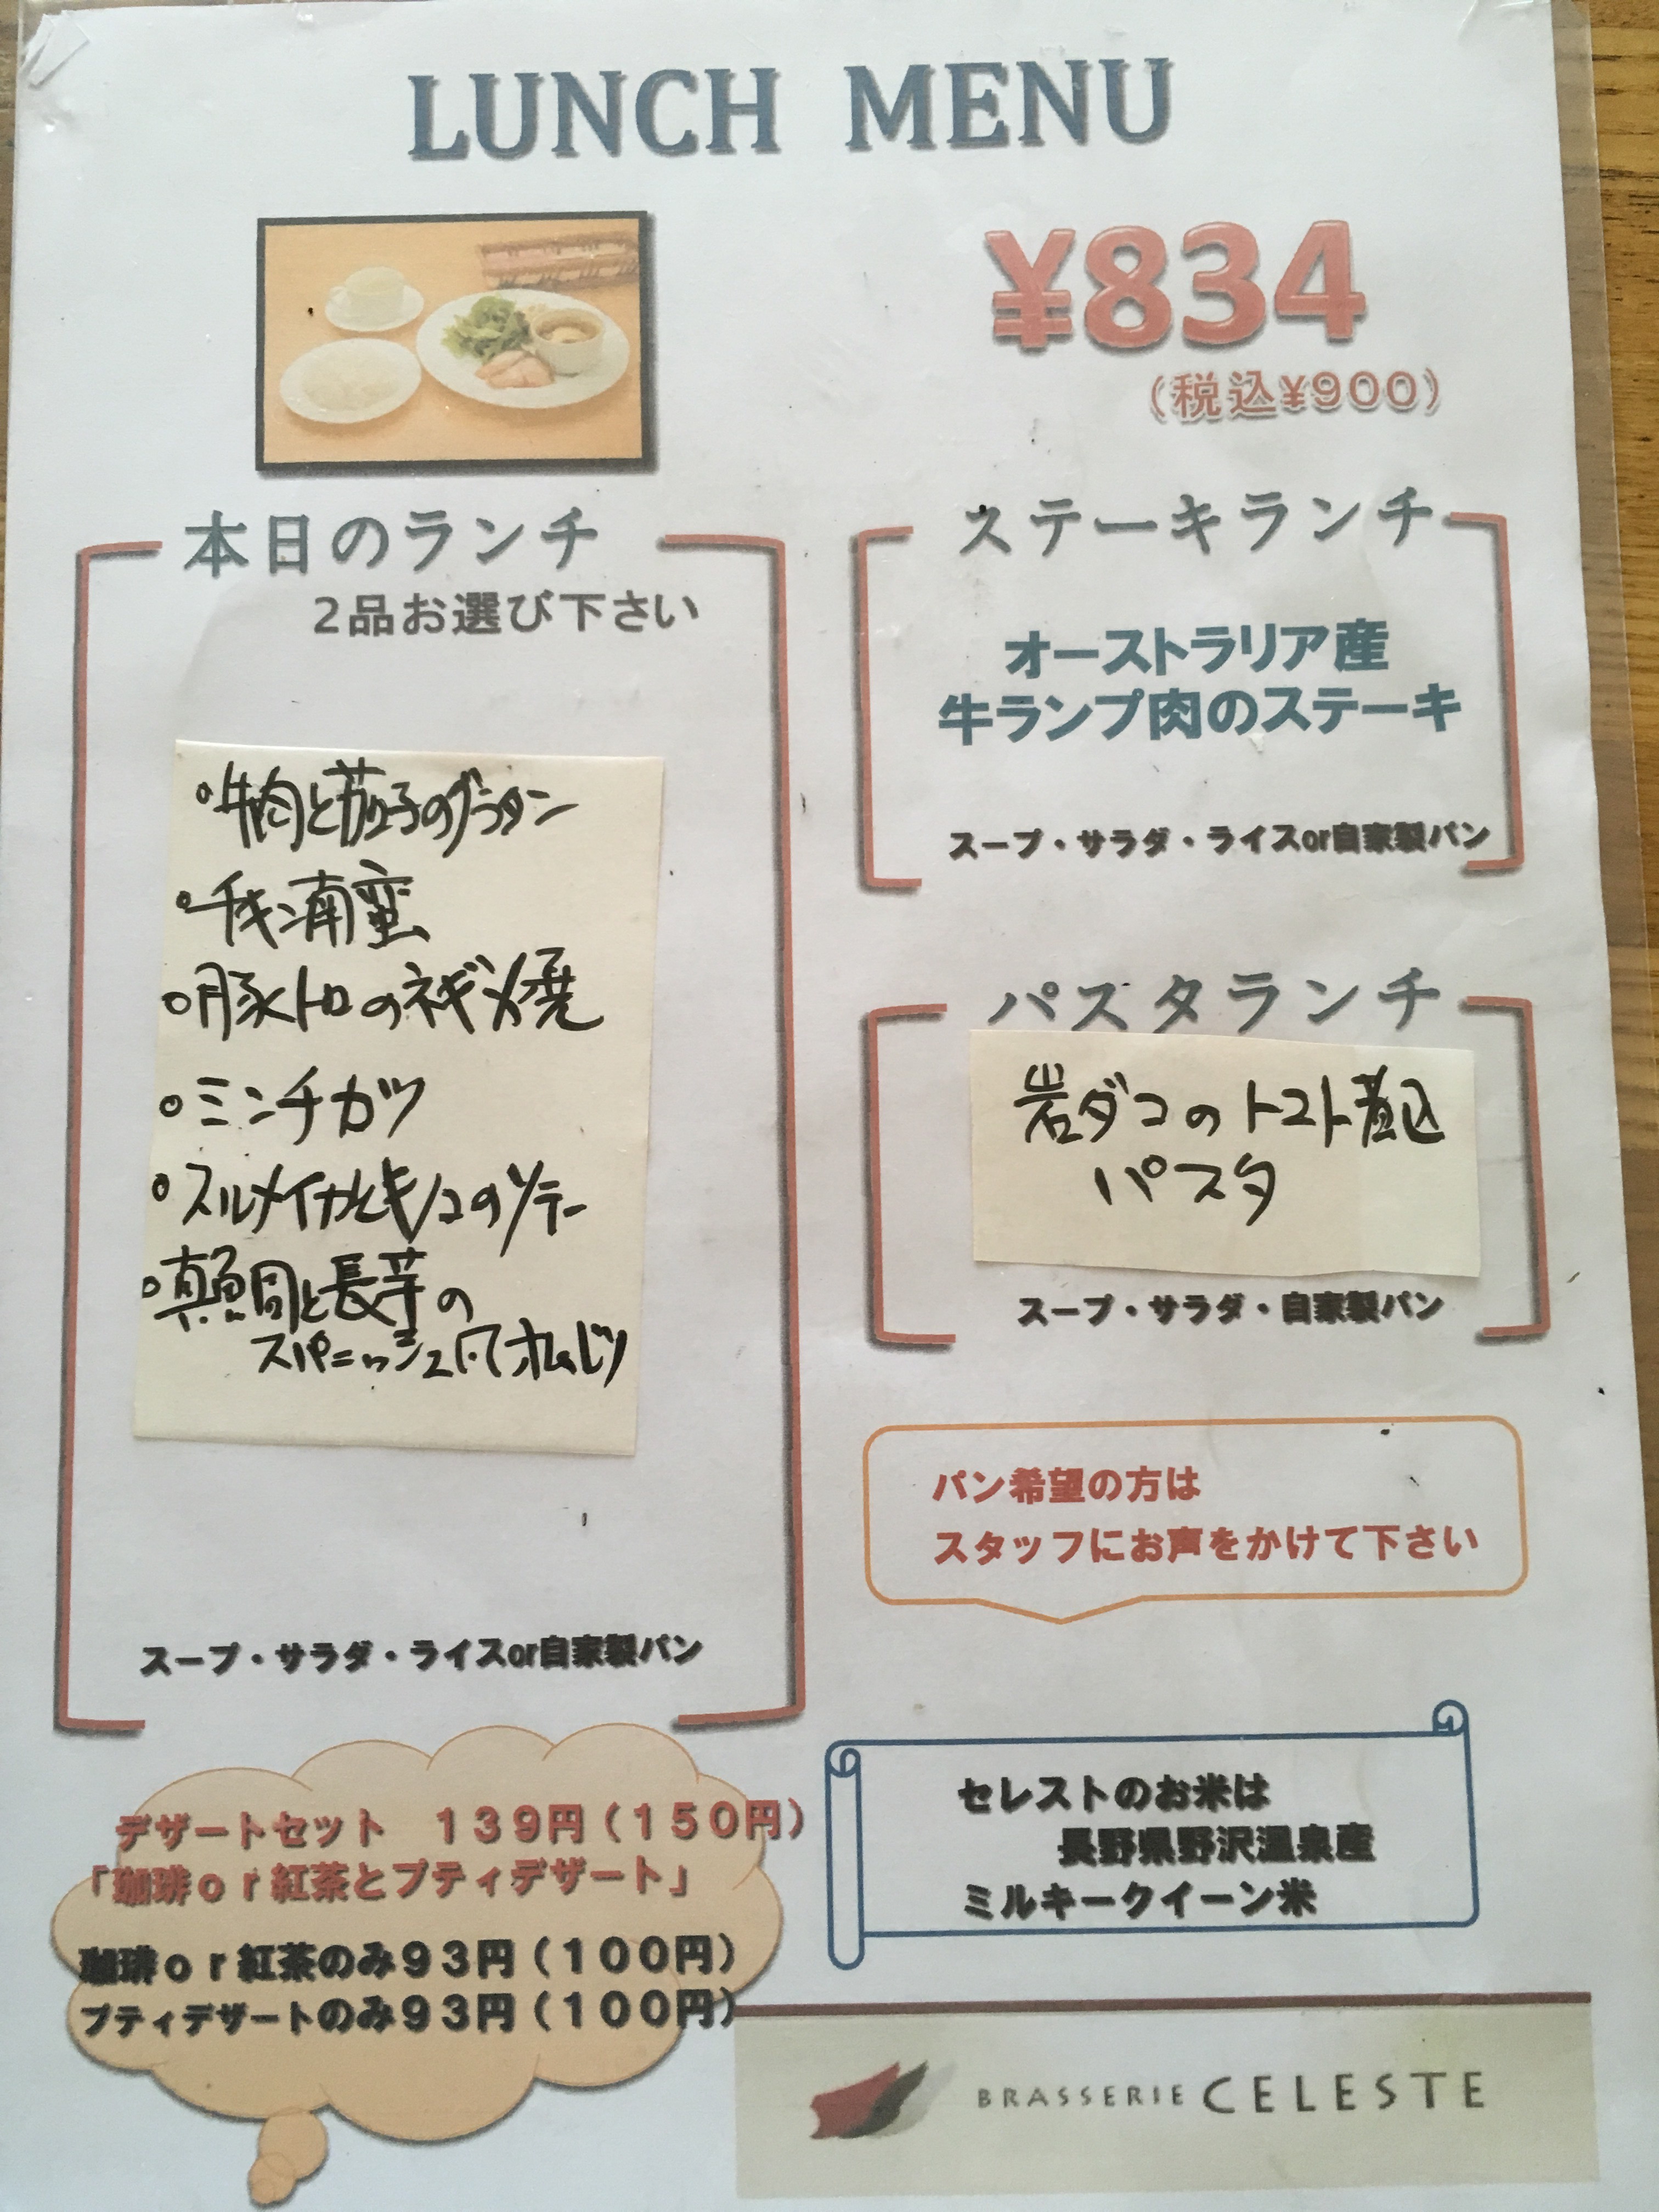 LUNCH MENU
¥834
(税込¥900)
本日のランチ
2品お選び下さい
・牛肉と茄子のグラタン
・チキン南蛮
・豚トロのネギメ焼
・ミンチカツ
・スルメイカとキノコのソテー
・真鯛と長芋の
スパニッシュ風オムレツ
スープ・サラダ・ライスor自家製パン
ステーキランチ
オーストラリア産
牛ランプ肉のステーキ
スープ・サラダ・ライスor自家製パン
パスタランチ
岩ダコのトマト煮込
パスタ
スープ・サラダ・自家製パン
パン希望の方は
スタッフにお声をかけて下さい
デザートセット 139円(150円)
「珈琲or紅茶とプティデザート」
珈琲or紅茶のみ93円(100円)
プティデザートのみ93円(100円)
セレストのお米は
長野県野沢温泉産
ミルキークイーン米
BRASSERIE CELESTE